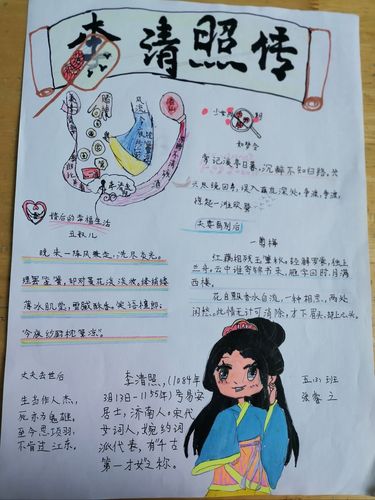 李清照传
少女时期
如梦令
常记溪亭日暮,沉醉不知归路,兴
尽晚回舟,误入藕花深处,争渡,争渡,
惊起一滩欧鹭
婚后的幸福生活
丑奴儿
晚来一阵风兼雨,洗尽炎光。
理罢笙簧,却对菱花淡淡妆。绛绡缕
薄冰肌莹,雪腻酥香。笑语檀郎:
今夜纱厨枕簟凉。
夫妻离别后
一剪梅
红藕香残玉簟秋。轻解罗裳,独上
兰舟。云中谁寄锦书来,雁字回时,月满
西楼。
花自飘香水自流,一种相思,两处
闲愁。此情无计可消除,才下眉头,却上心头。
丈夫去世后
生当作人杰,
死亦为鬼雄。
至今思项羽,
不肯过江东。
李清照,(1084年
3月13日-1155年)号易安
居士,济南人。宋代
女词人,婉约词
派代表,有“千古
第一才女”之称。
五(3)班
张睿之